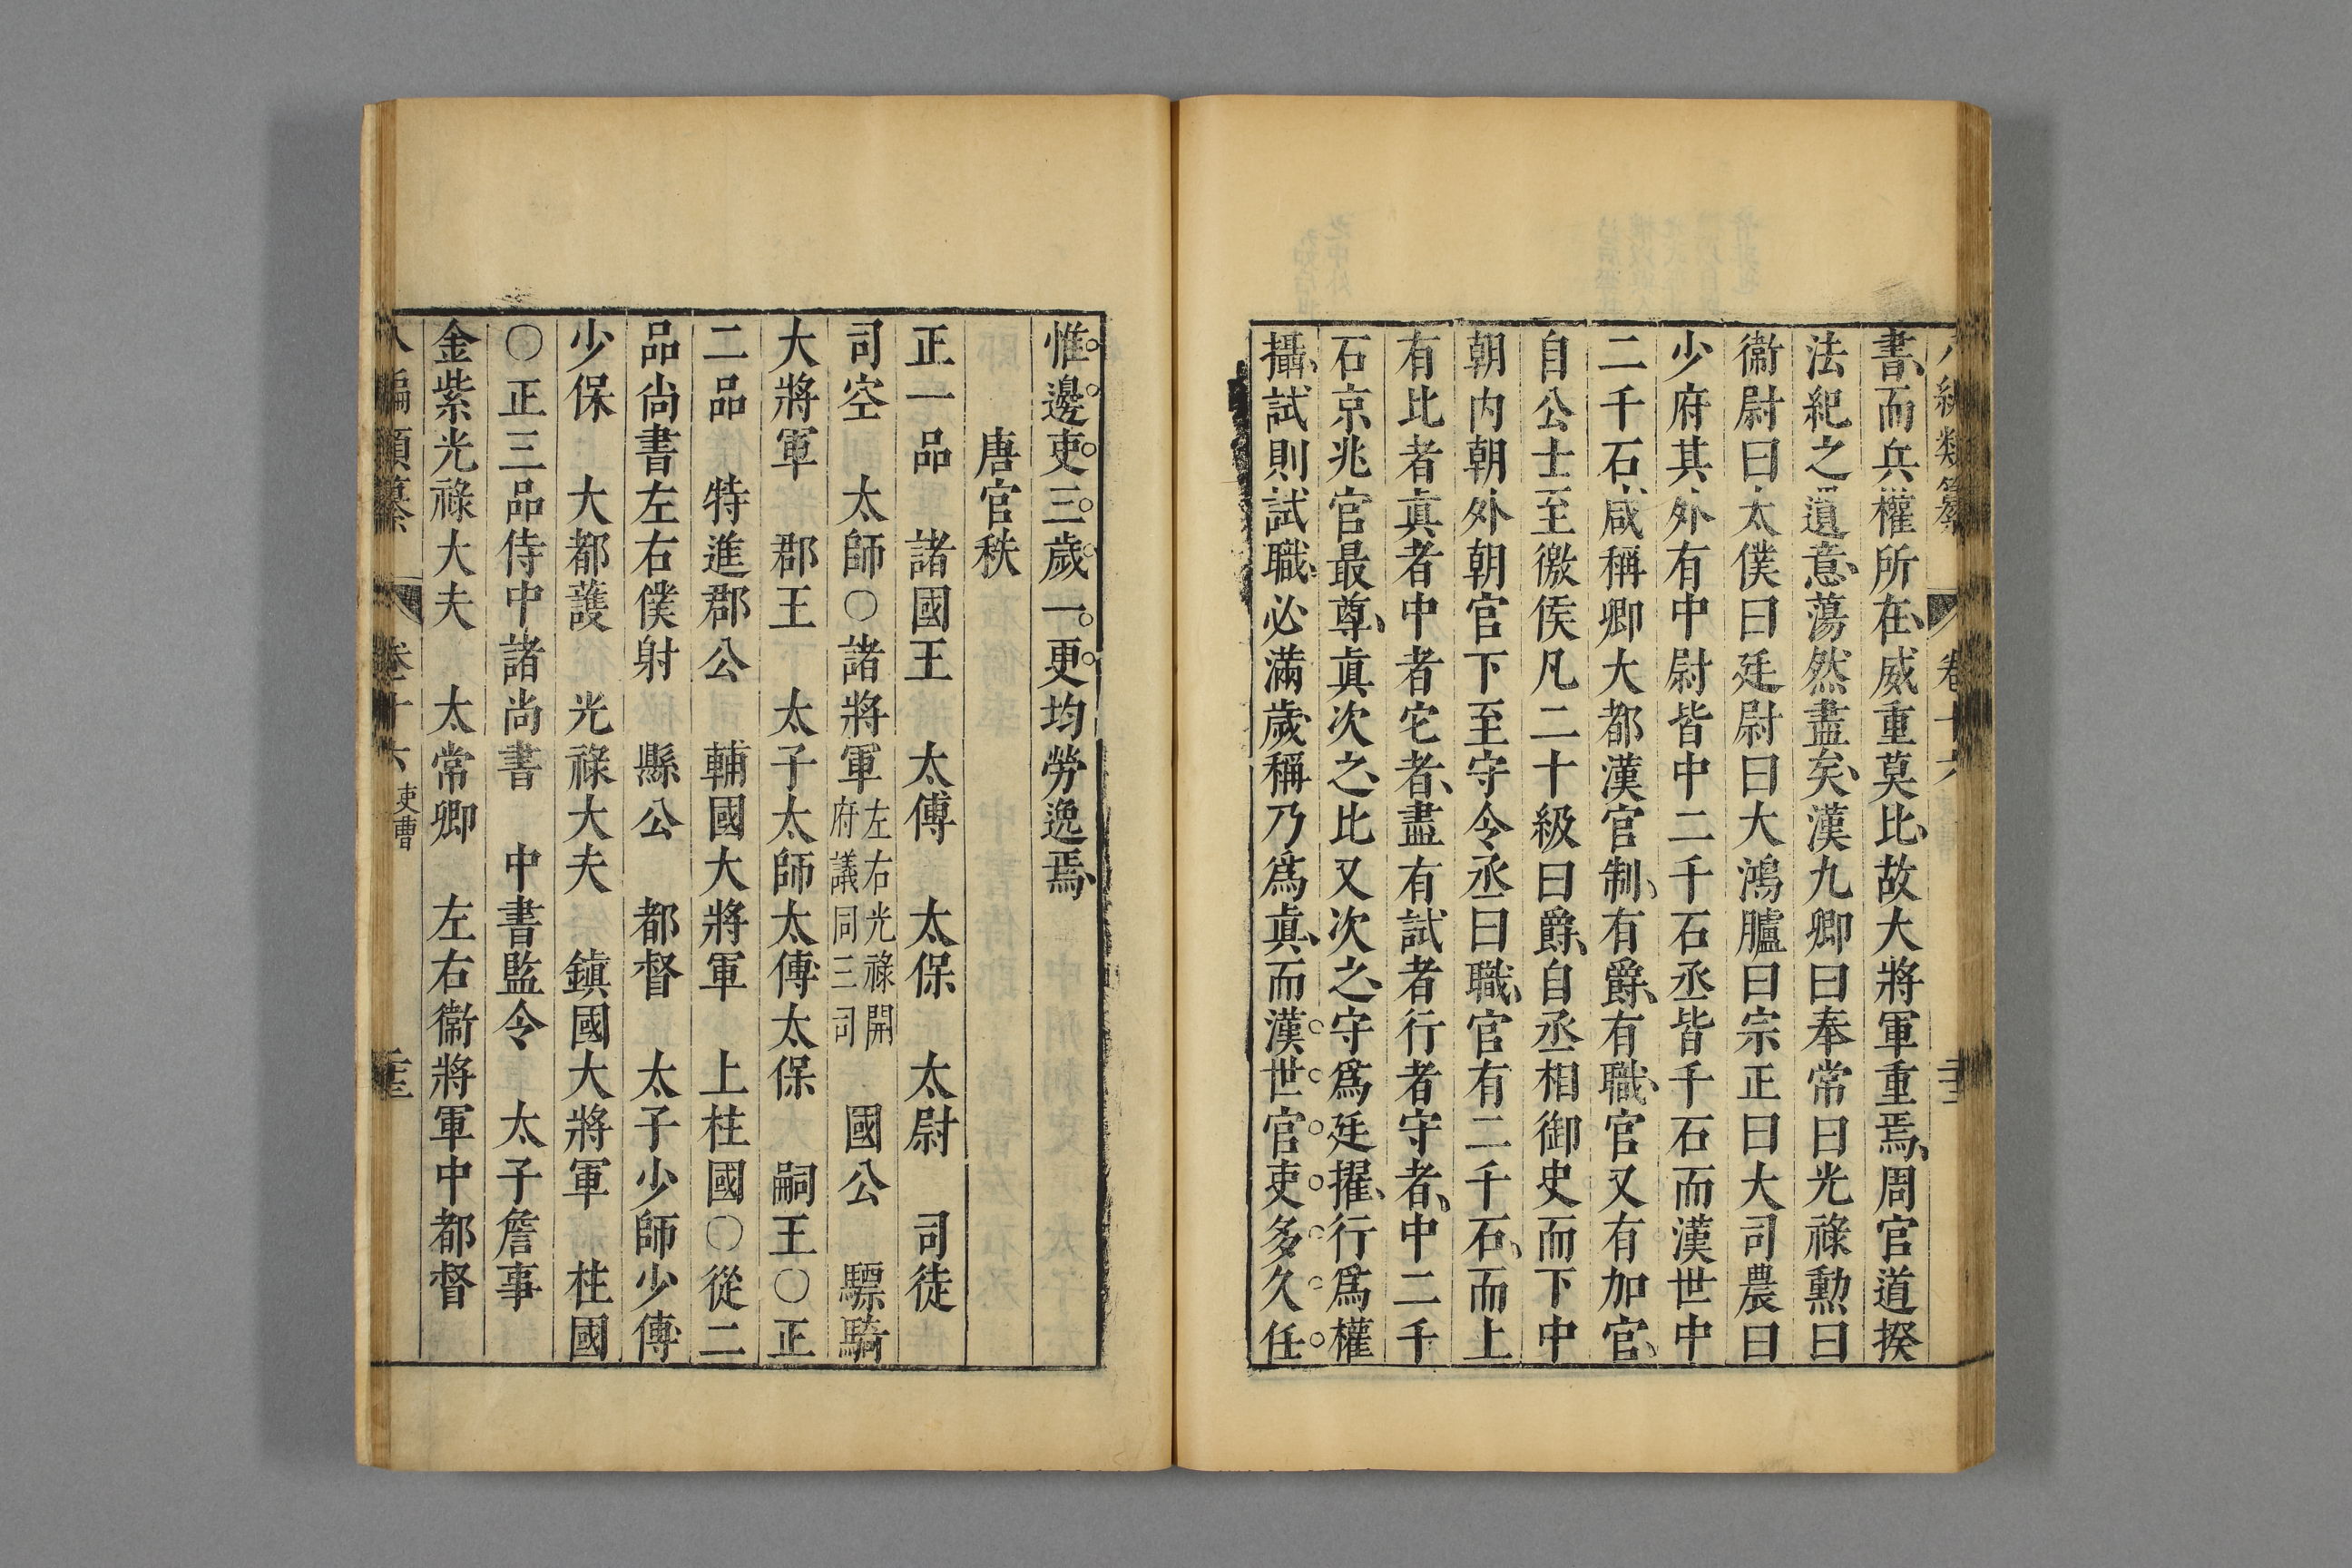 八編類纂 卷十六
書、而兵權所在、威重莫比、故大將軍重焉、周官道揆
法紀之遺意、蕩然盡矣、漢九卿曰奉常曰光祿勲曰
衞尉曰太僕曰廷尉曰大鴻臚曰宗正曰大司農曰
少府其外有中尉皆中二千石丞皆千石而漢世中
二千石咸稱卿大都漢官制、有爵、有職、官又有加官、
自公士至徹侯凡二十級曰爵、自丞相御史而下中
朝内朝外朝官下至守令丞曰職、官有二千石、而上
有比者眞者中者它者、盡有試者行者守者、中二千
石京兆官最尊、眞次之、比又次之、守爲廷擢、行爲權
攝、試則試職、必滿歲稱乃爲眞、而漢世官吏多久任
惟邊吏三歲一更均勞逸焉、
唐官秩
正一品 諸國王 太傅 太保 太尉 司徒
司空 太師○諸將軍左右光祿開府議同三司 國公 驃騎
大將軍 郡王 太子太師太傅太保 嗣王○正
二品 特進郡公 輔國大將軍 上柱國○從二
品尙書左右僕射 縣公 都督 太子少師少傅
少保 大都護 光祿大夫 鎮國大將軍 柱國
○正三品侍中諸尚書 中書監令 太子詹事
金紫光祿大夫 太常卿 左右衞將軍中都督
八編類纂 卷十六 吏曹